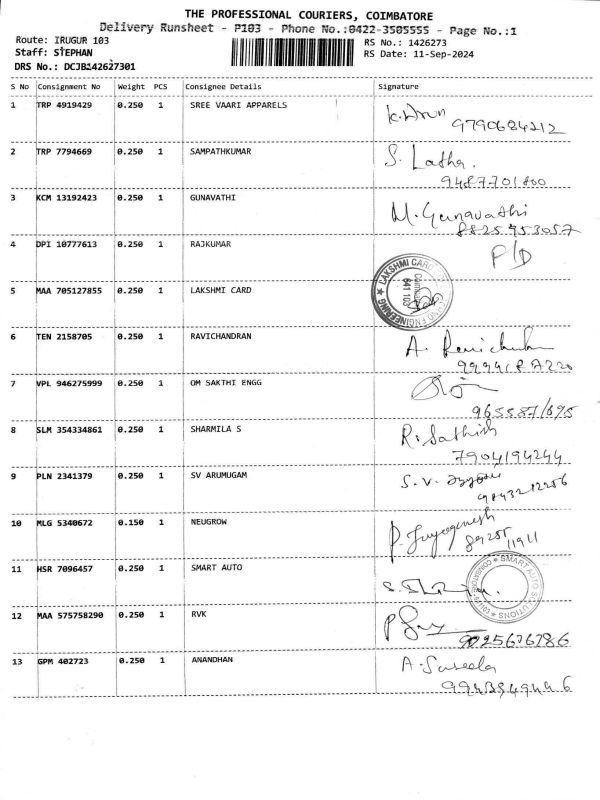 THE PROFESSIONAL COURIERS, COIMBATORE
Delivery Runsheet - P103 - Phone No.:0422-3505555 - Page No.:1
Route: IRUGUR 103 RS No.: 1426273
Staff: STEPHAN RS Date: 11-Sep-2024
DRS No.: DCJB142627301
S No Consignment No Weight PCS Consignee Details Signature
1 TRP 4919429 0.250 1 SREE VAARI APPARELS K. Arun
9790684212
2 TRP 7794669 0.250 1 SAMPATHKUMAR S. Latha.
9487701800
3 KCM 13192423 0.250 1 GUNAVATHI M. Gunavathi
8825953057
4 DPI 10777613 0.250 1 RAJKUMAR P/D
5 MAA 705127855 0.250 1 LAKSHMI CARD
641 103
6 TEN 2158705 0.250 1 RAVICHANDRAN A. Ravichandran
7 VPL 946275999 0.250 1 OM SAKTHI ENGG
8 SLM 354334861 0.250 1 SHARMILA S R. Sathish
7904194244
9 PLN 2341379 0.250 1 SV ARUMUGAM S. V.
9843212256
10 MLG 5340672 0.150 1 NEUGROW
11 HSR 7096457 0.250 1 SMART AUTO
SMART AUTO SOLUTIONS
12 MAA 575758290 0.250 1 RVK
9025676786
13 GPM 402723 0.250 1 ANANDHAN A. Suseela